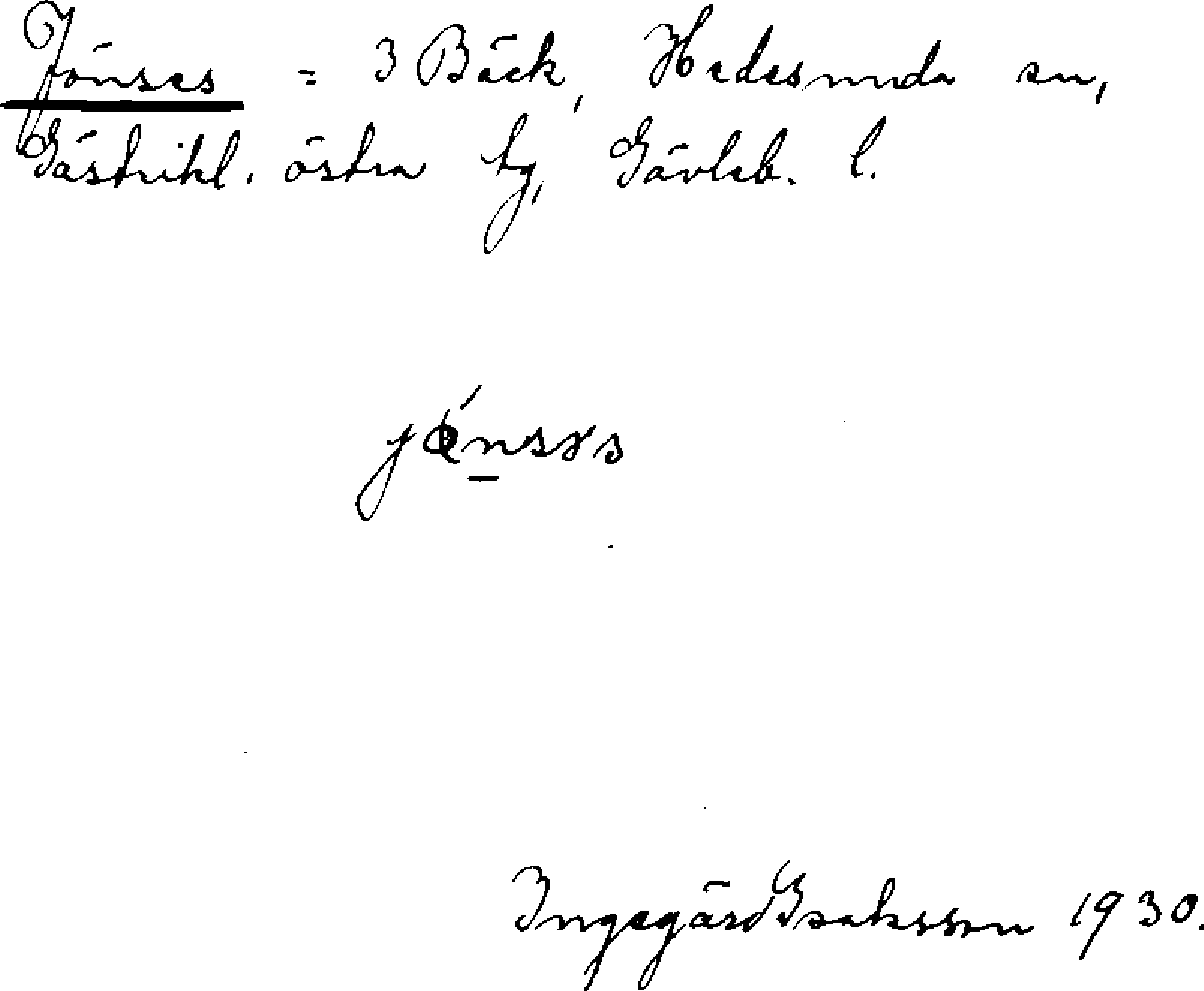 Jönses = 3 Bäck, Hedesunda sn,
Gästrikl. östra tg, Gävleb. l.
Ingegärd Isaksson 1930.